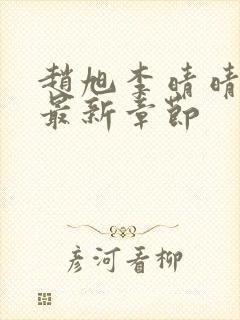 趙旭李晴晴
最新章節
彦河看柳